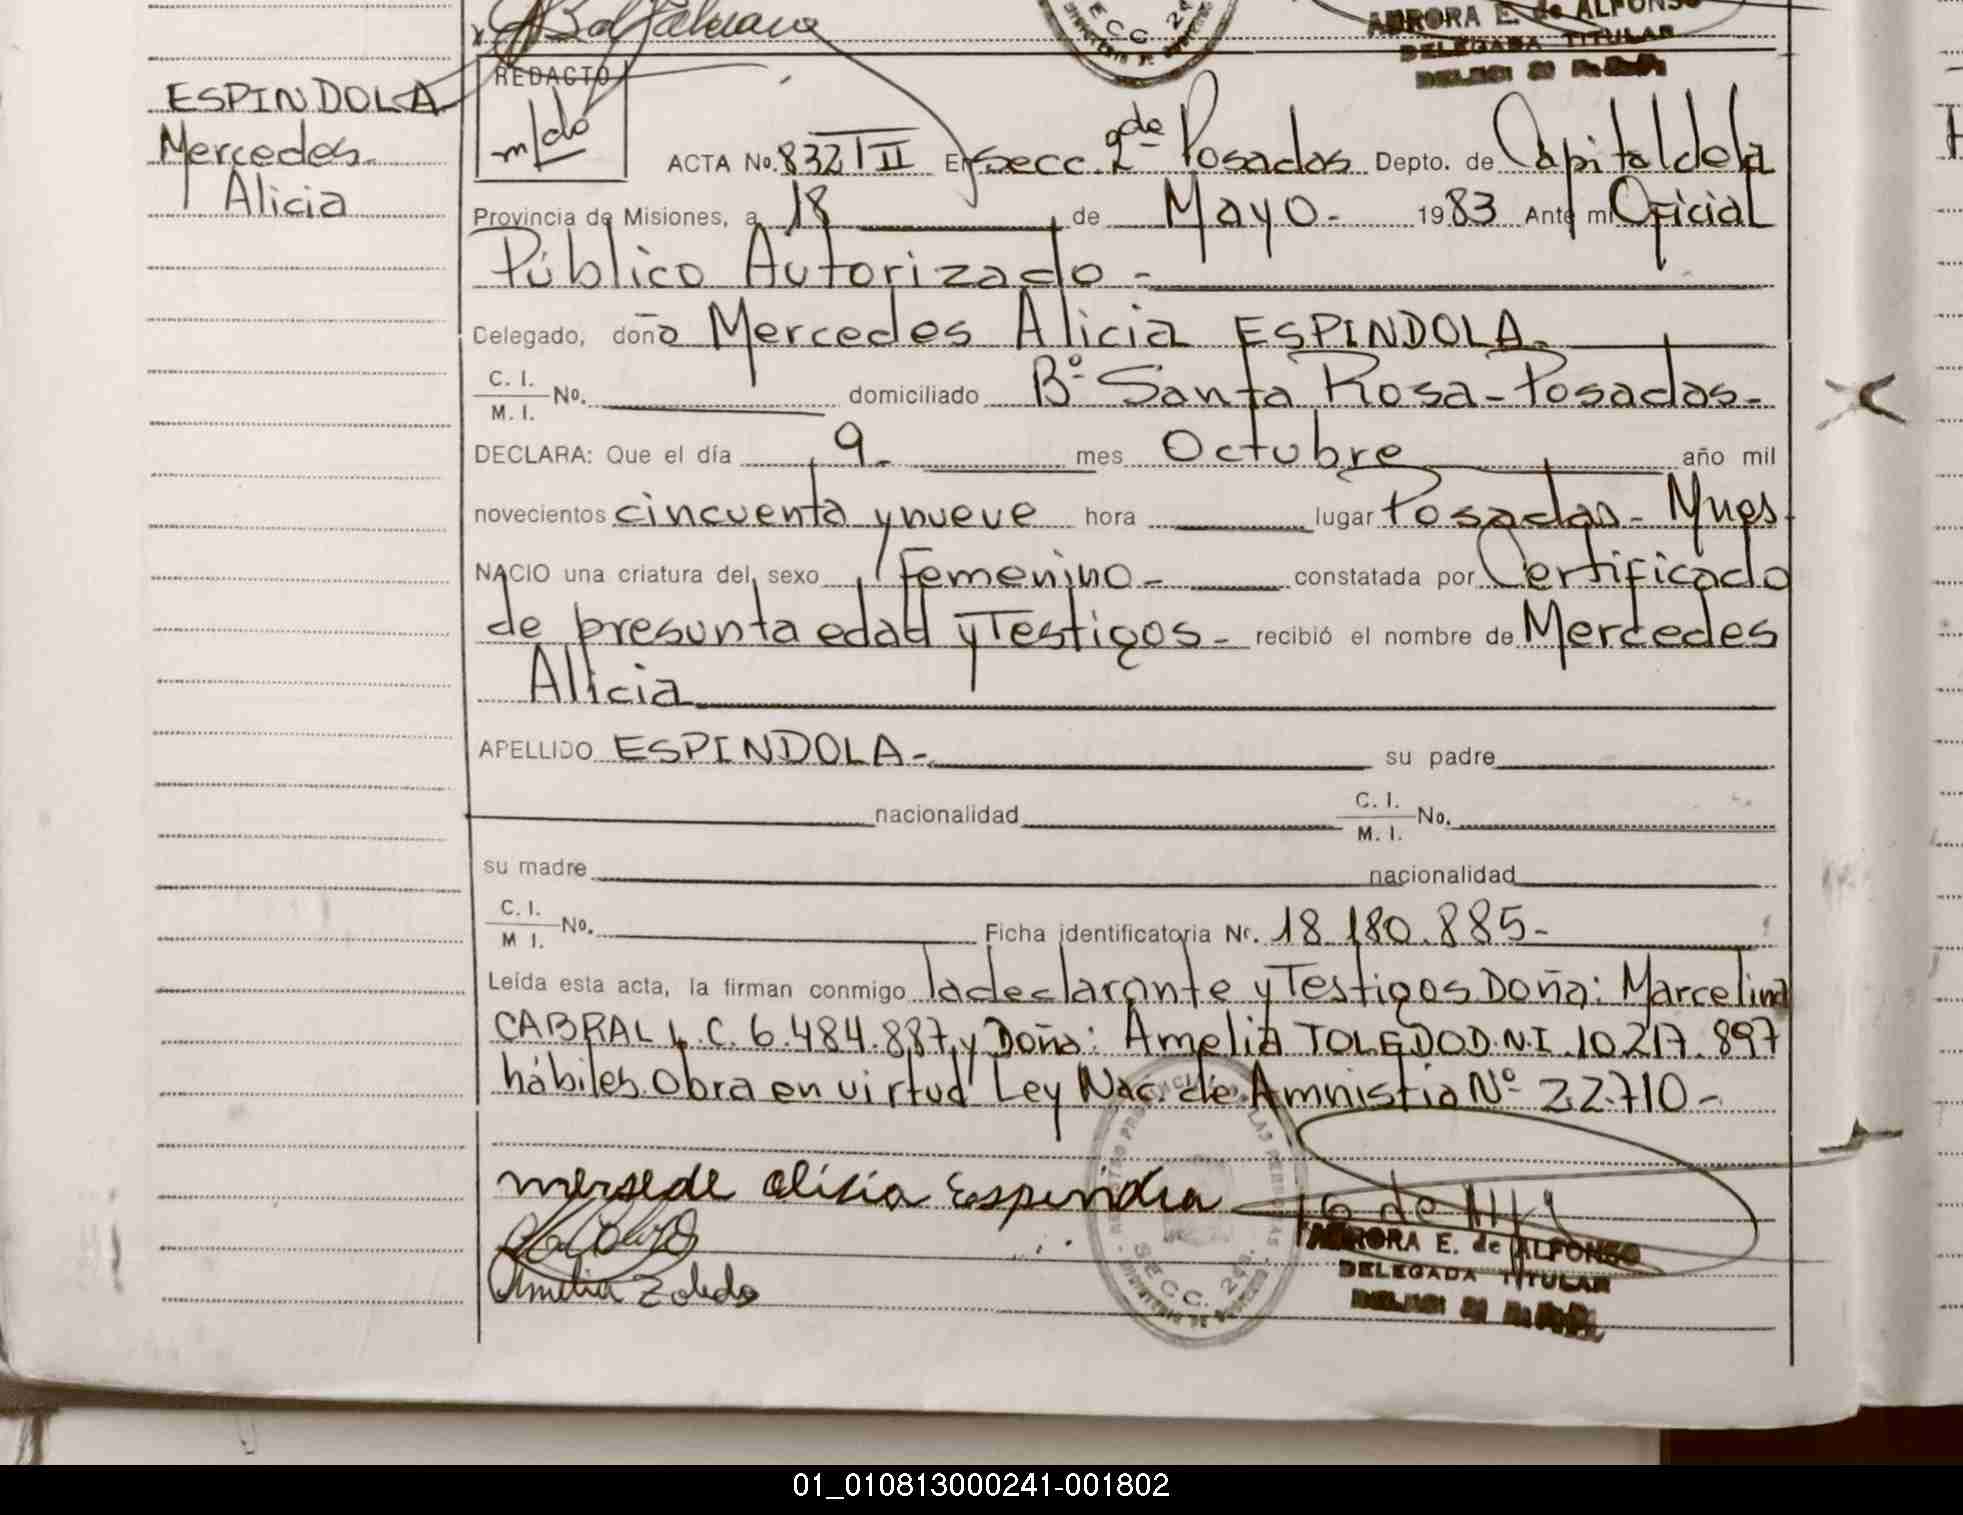 AURORA E. de ALFONSO
DELEGADA TITULAR
SECC. 2
ESPINDOLA
Mercedes
Alicia
REDACTO
ACTA No. 832 T II En secc. 2da Posadas Depto. de Capital de la
Provincia de Misiones, a 18 de Mayo - 1983 Ante mi Oficial
Público Autorizado -
Delegado, doña Mercedes Alicia ESPINDOLA -
C. I.
M. I. No. domiciliado Bº Santa Rosa - Posadas -
DECLARA: Que el día 9 - mes Octubre año mil
novecientos cincuenta y nueve hora lugar Posadas - Mnes
NACIO una criatura del sexo Femenino - constatada por Certificado
de presunta edad y Testigos - recibió el nombre de Mercedes
Alicia
APELLIDO ESPINDOLA - su padre
nacionalidad C. I.
M. I. No.
su madre nacionalidad
C. I.
M I. No. Ficha identificatoria Nr. 18.180.885 -
Leída esta acta, la firman conmigo la declarante y Testigos Doña: Marcelina
CABRAL L.C. 6.484.887 y Doña: Amelia TOLEDO D.N.I. 10.217.897
hábiles. Obra en virtud Ley Nac. de Amnistia Nº 22.710 -
mersede alisia Espindola
Amelia Toledo
SECC. 2da.
AURORA E. de ALFONSO
DELEGADA TITULAR
01_010813000241-001802